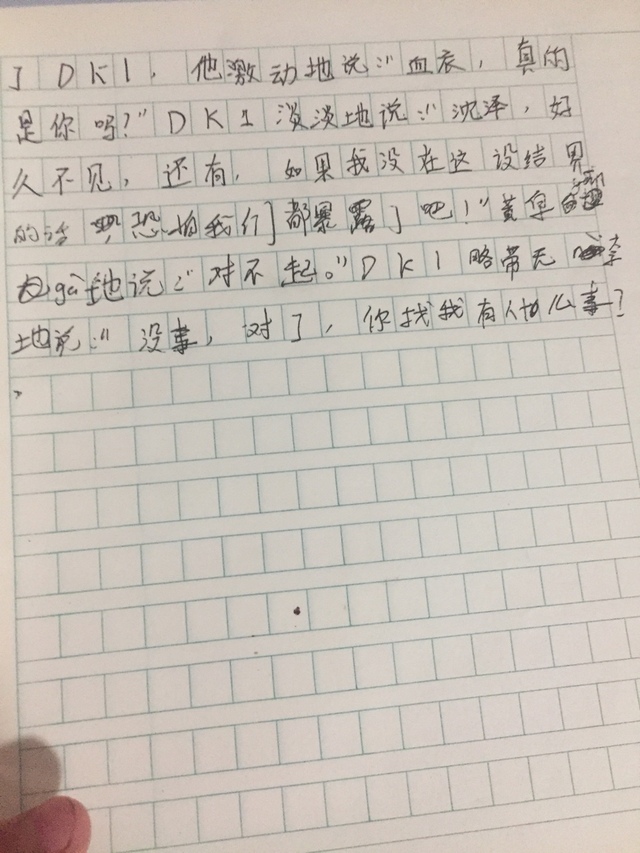 了DK1，他激动地说：“血衣，真的
是你吗？”DK1淡淡地说：“沈泽，好
久不见，还有，如果我没在这设结界
的话，恐怕我们都暴露了吧！”黄
gà地说：“对不起。”DK1略带无奈
地说：“没事，对了，你找我有什么事？
”